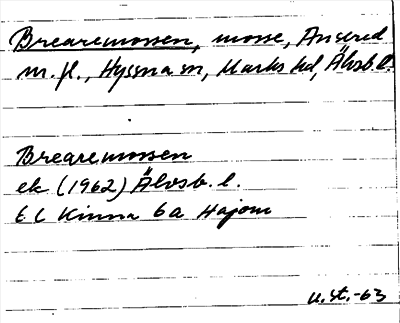 Brearemossen, mosse, Ansered
m.fl., Hyssna sn, Marks hd, Älvsb.l.
Brearemossen
ek (1962) Älvsb. l.
6C Kinna 6a Hajom
u.st.-63